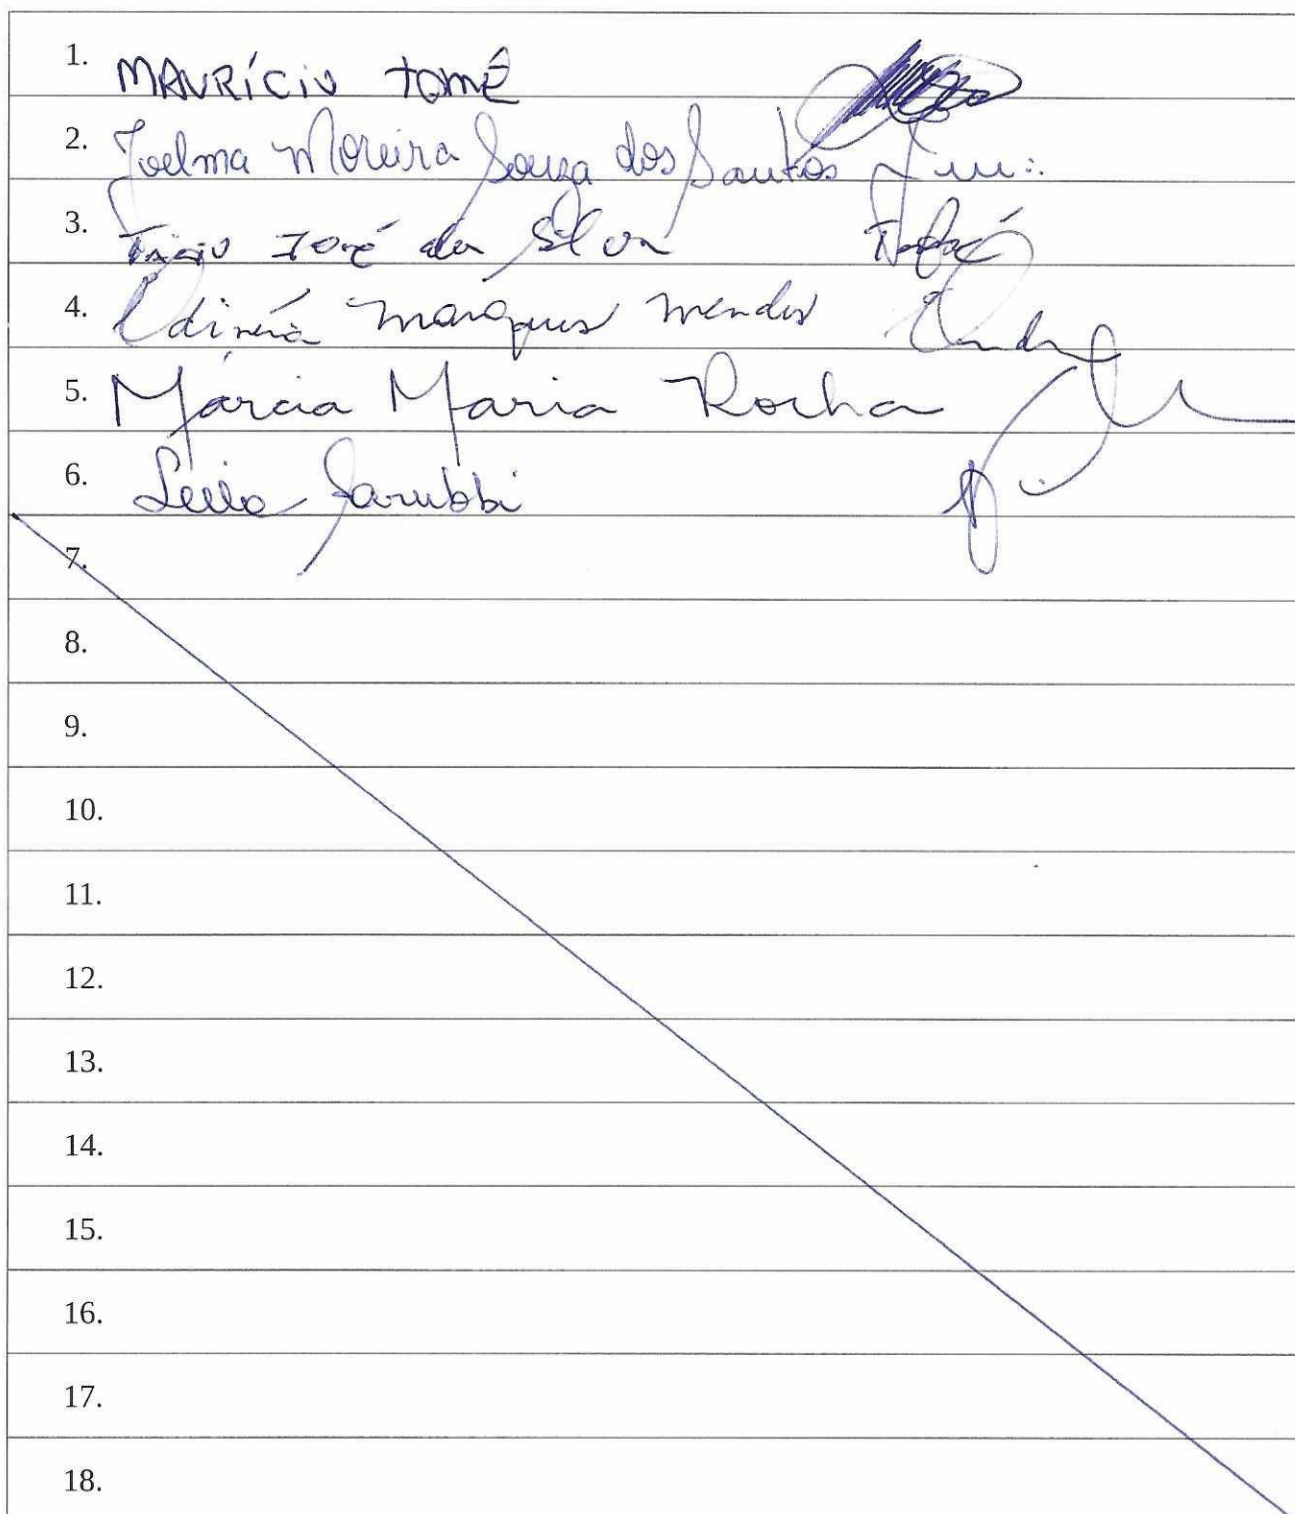 1. MAURÍCIO TOMÉ
2. Joelma Moreira Souza dos Santos
3. José da Silva
4. Marques Mendes
5. Márcia Maria Rocha
6. Leila Sarubbi
7.
8.
9.
10.
11.
12.
13.
14.
15.
16.
17.
18.